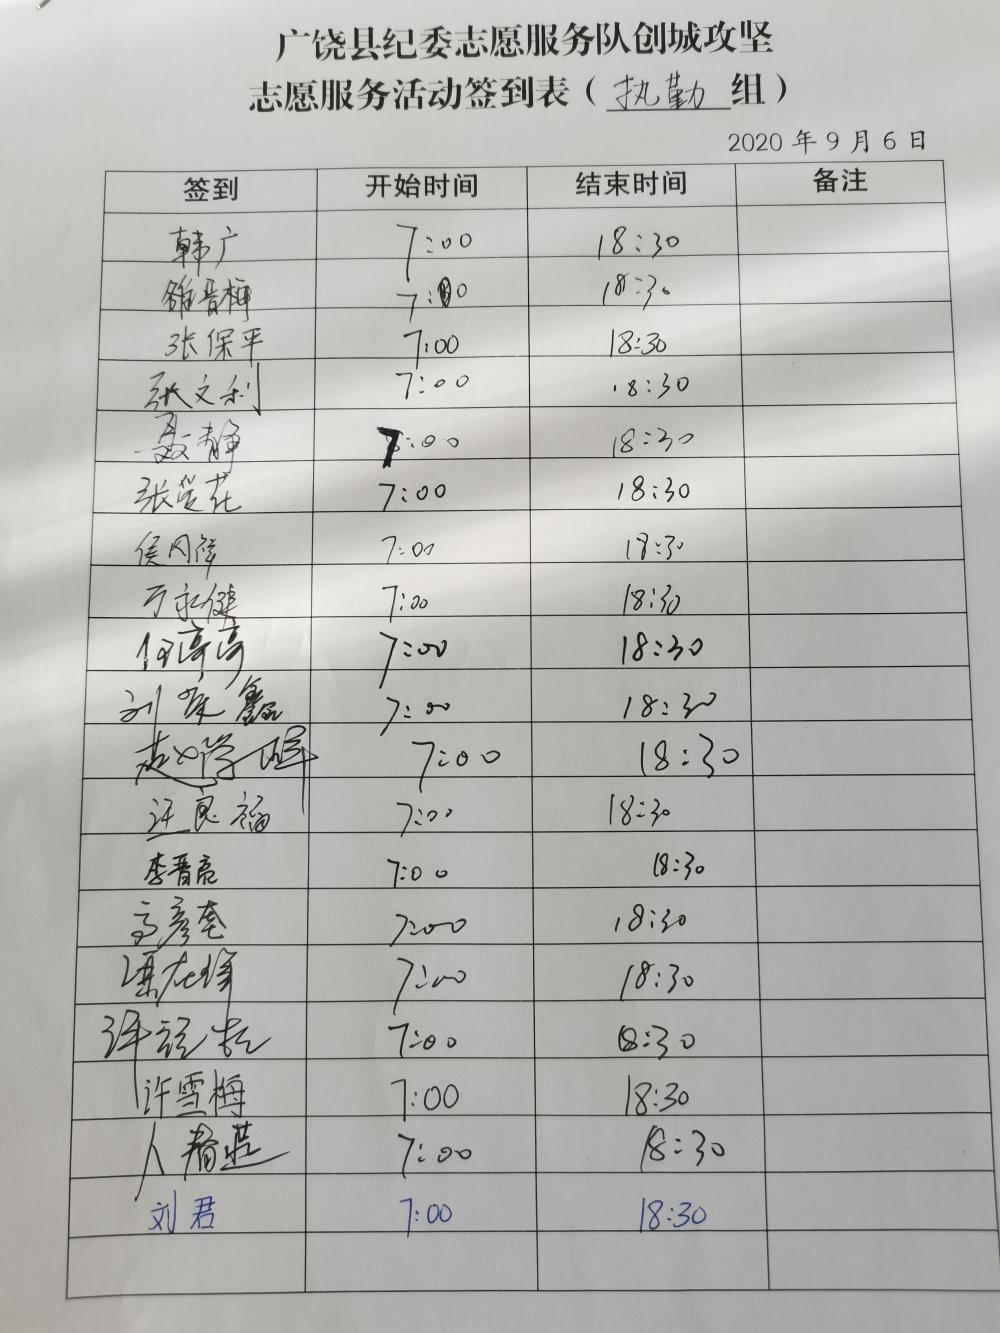 广饶县纪委志愿服务队创城攻坚
志愿服务活动签到表（执勤组）
2020 年 9 月 6 日
签到 开始时间 结束时间 备注
韩广 7:00 18:30
7:00 18:30
张保平 7:00 18:30
张文利 7:00 18:30
聂静 7:00 18:30
张 花 7:00 18:30
侯 祥 7:00 18:30
永健 7:00 18:30
7:00 18:30
刘 鑫 7:00 18:30
赵 7:00 18:30
汪良福 7:00 18:30
李晋亮 7:00 18:30
高彦奎 7:00 18:30
7:00 18:30
许 7:00 18:30
许雪梅 7:00 18:30
7:00 18:30
刘君 7:00 18:30